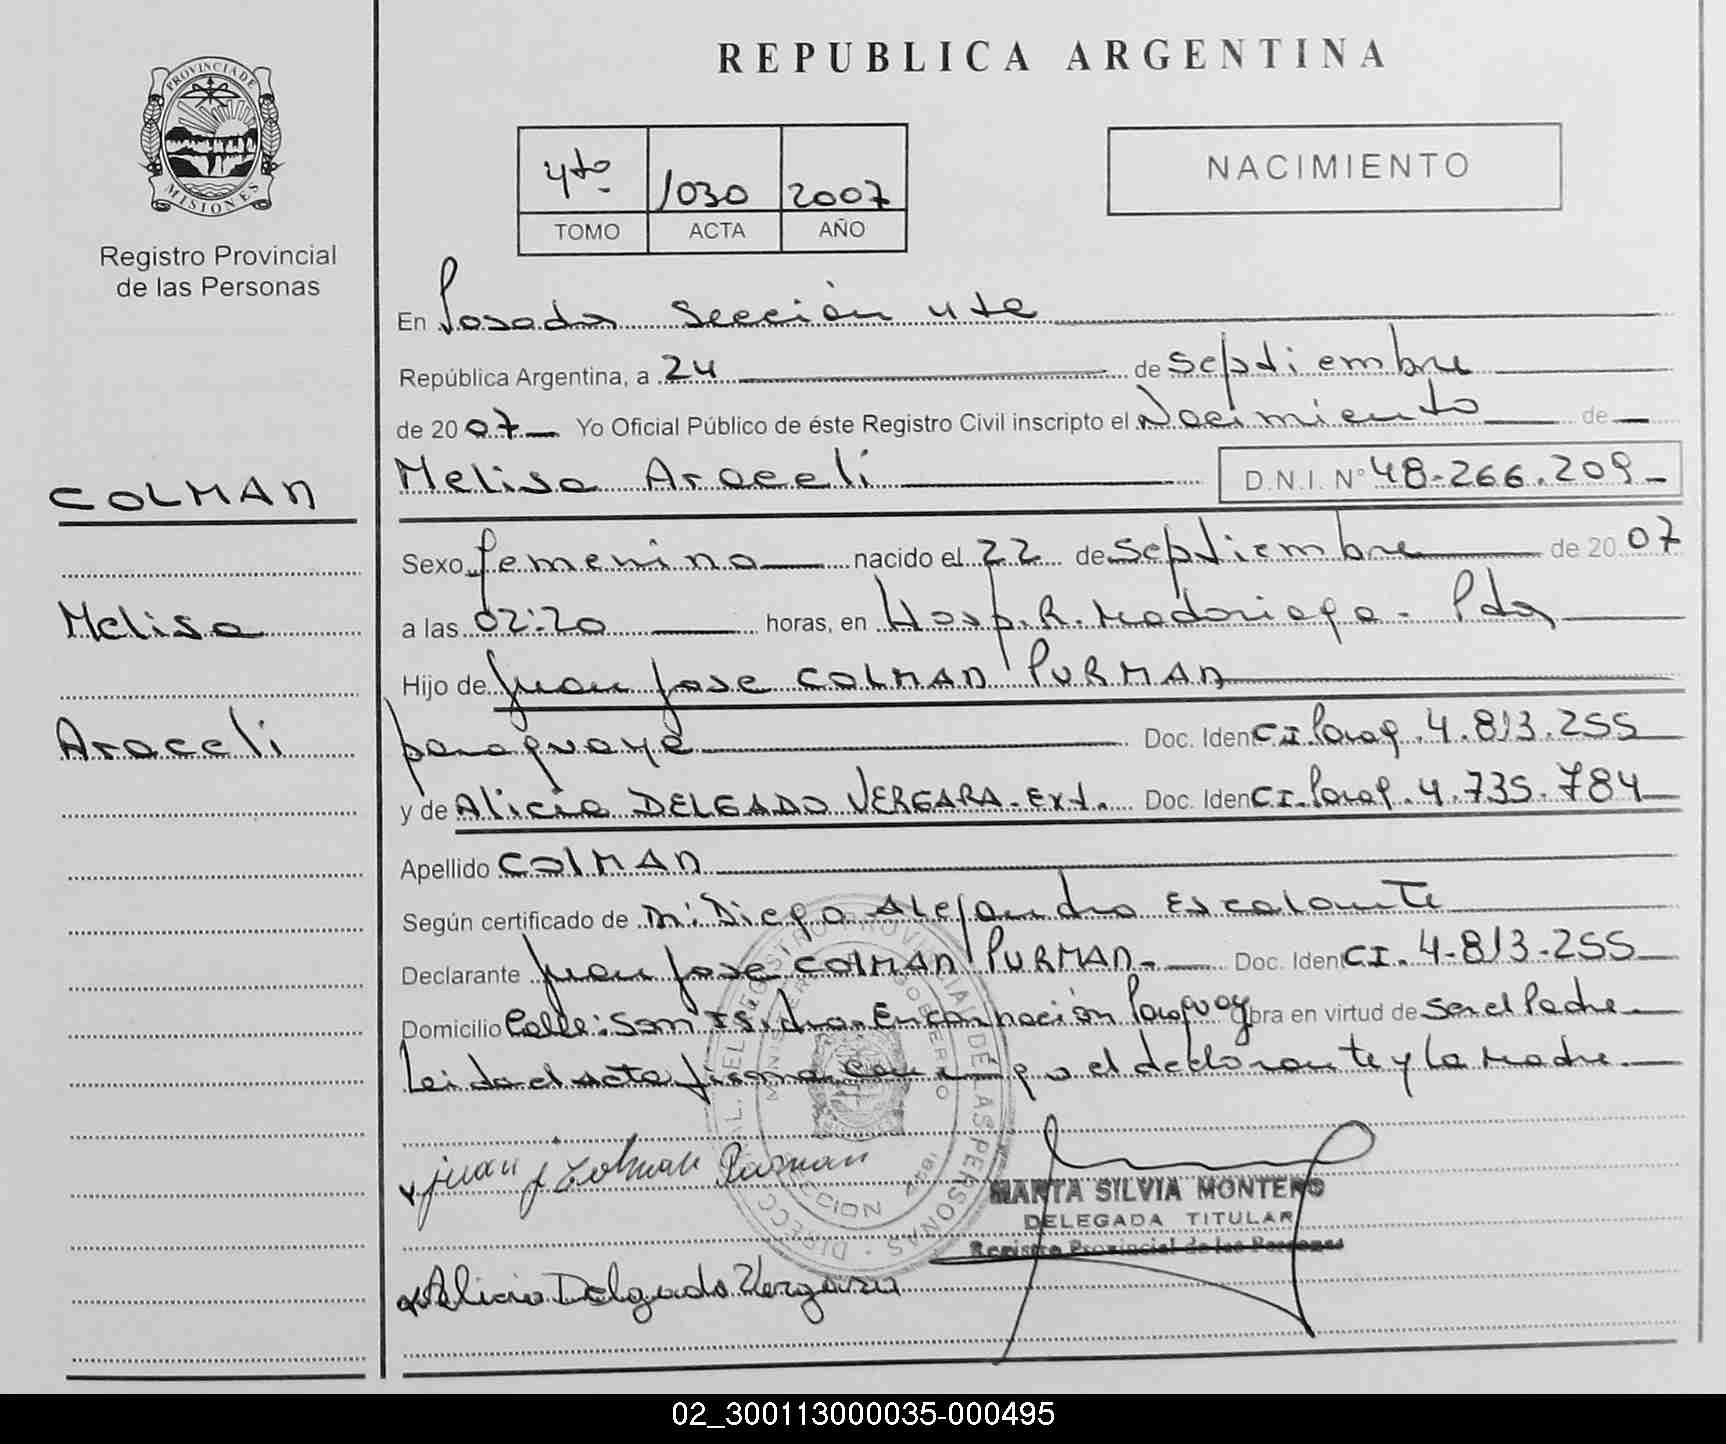 REPUBLICA ARGENTINA
PROVINCIA DE
MISIONES
Registro Provincial
de las Personas
4to 1030 2007
TOMO ACTA AÑO
NACIMIENTO
En Posadas Sección 4ta
República Argentina, a 24 de Septiembre
de 2007 Yo Oficial Público de éste Registro Civil inscripto el Nacimiento de
COLMAN
Melisa Araceli D.N.I. Nº 48.266.209
Sexo femenino nacido el 22 de Septiembre de 2007
Melisa
a las 02:20 horas, en Hosp. R. Madariaga - Pdas
Hijo de Juan Jose COLMAN PURMAN
Araceli
paraguayo Doc. Iden CI. Parag. 4.813.255
y de Alicia DELGADO VERGARA - Ext. Doc. Iden CI. Parag. 4.735.784
Apellido COLMAN
Según certificado de Diego Alejandro Escalante
Declarante Juan Jose COLMAN PURMAN Doc. Iden CI. 4.813.255
Domicilio Calle: San Isidro - Encarnación Paraguay obra en virtud de ser el Padre
Leida el acta firma conmigo el declarante y la Madre
Juan J Colman Purman
MARTA SILVIA MONTERO
DELEGADA TITULAR
Registro Provincial de las Personas
Alicia Delgado Vergara
02_300113000035-000495